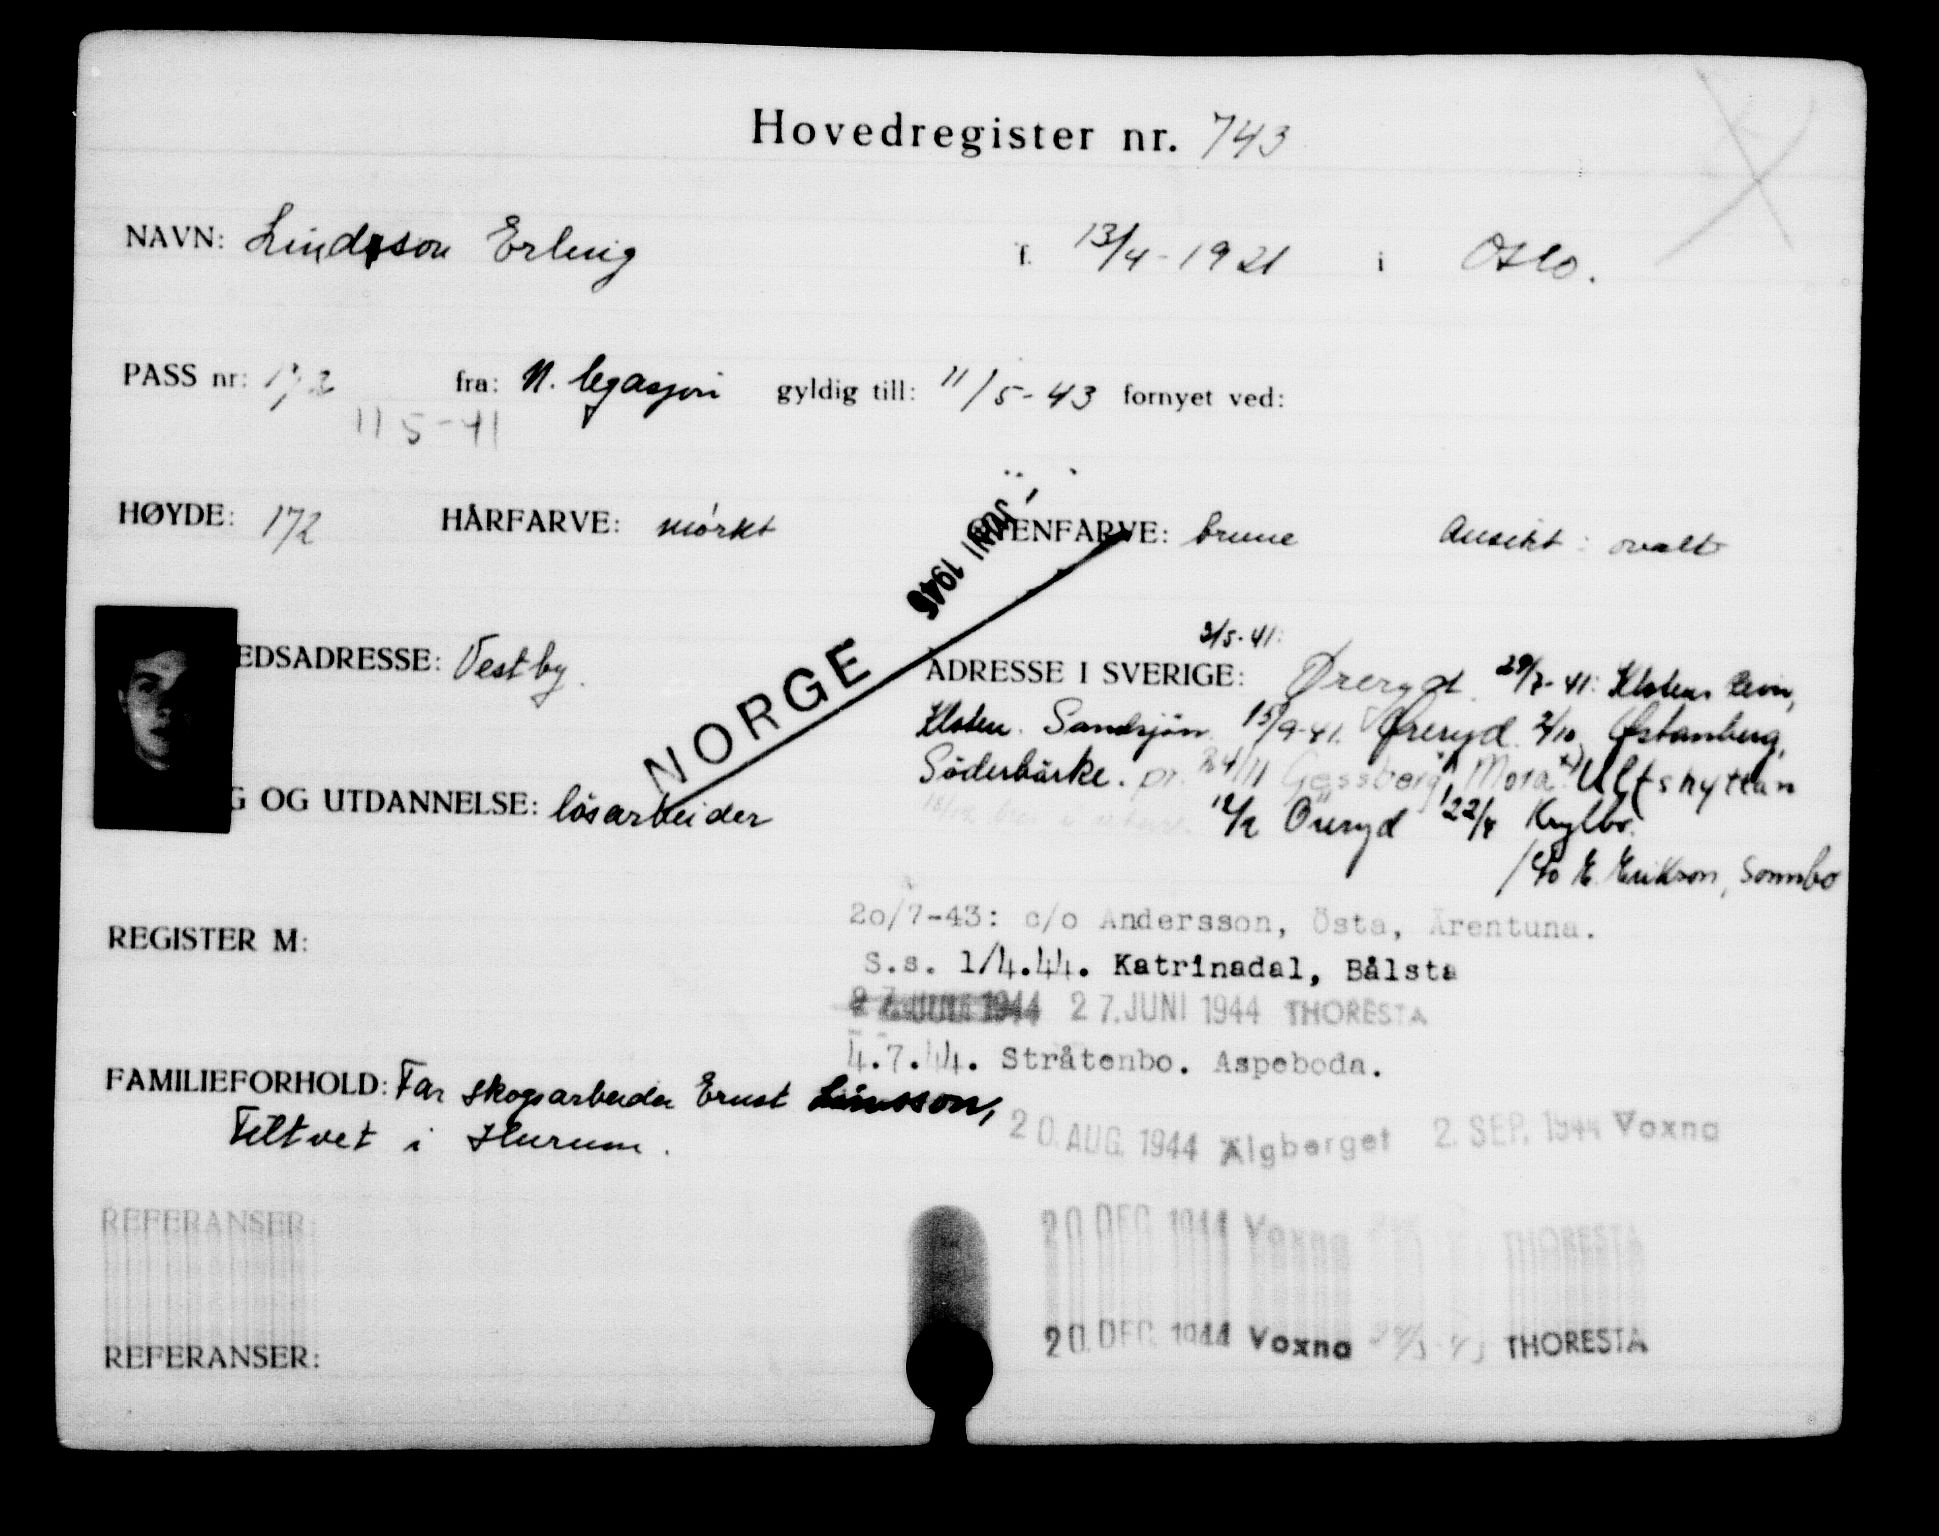 Hovedregister nr. 743
NAVN: Lindsson Erling f. 13/4-1921 i Oslo.
PASS nr: 172 fra: N. legasjon gyldig till: 11/5-43 fornyet ved:
11 5-41
HØYDE: 172 HÅRFARVE: mörkt ØYENFARVE: brune Ansikt: ovalt
JUNI 1945
NORGE
EDSADRESSE: Vestby.
3/5-41:
ADRESSE I SVERIGE: Øreryd 29/7-41: Klotens
Kloten. Sandsjön. 15/9-41. Øreryd. 2/10 Östanberg,
Söderbärke. 24/11 Gessberg, Mora. Ulfshyttan
12/2 Öreryd 22/4 Krylbo.
c/o E. Erikson, Sonnbo
G OG UTDANNELSE: lösarbeider
20/7-43: c/o Andersson, Östa, Ärentuna.
REGISTER M:
S.s. 1/4.44. Katrinadal, Bålsta
27. JUNI 1944 THORESTA
4.7.44. Stråtenbo. Aspeboda.
FAMILIEFORHOLD: Far skogsarbeider Ernst Linsson,
Filtvet i Hurum.
20. AUG. 1944 Älgberget 2. SEP. 1944 Voxna
REFERANSER:
20. DEC. 1944 Voxna THORESTA
REFERANSER:
20. DEC. 1944 Voxna THORESTA